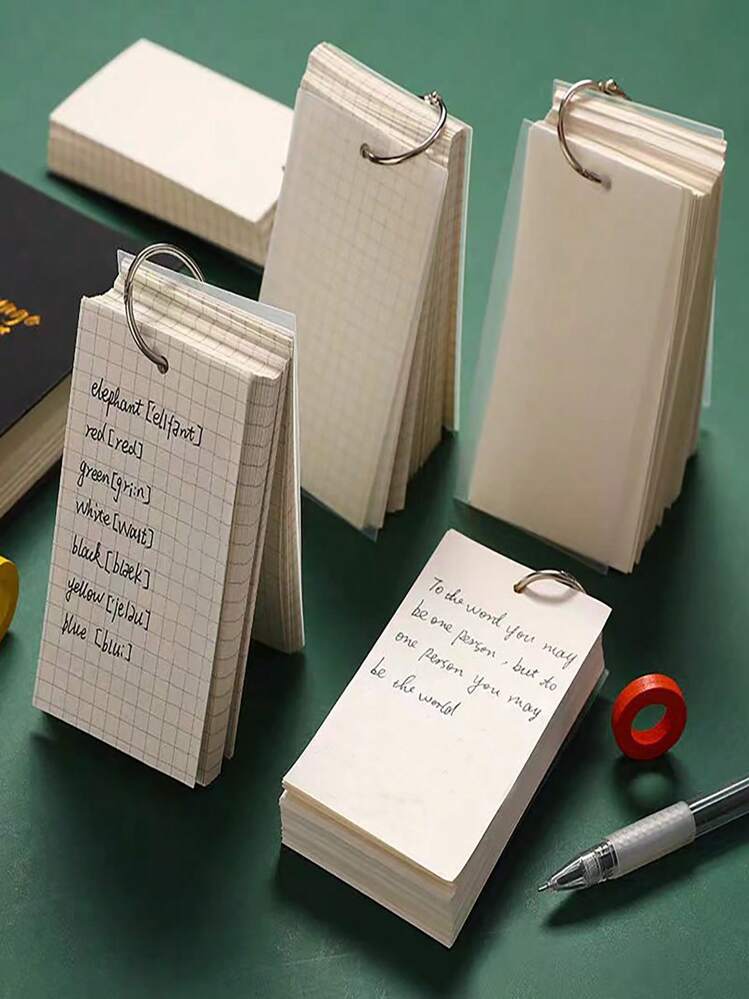 elephant ['elIfənt]
red [red]
green [gri:n]
white [waIt]
black [blæk]
yellow [jeləu]
blue [blu:]
To the word you may
be one person, but to
one person you may
be the world